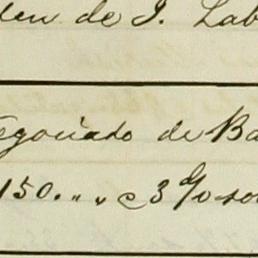 den de J. Lab
egociado de Ba
150.,, c 3 %o so